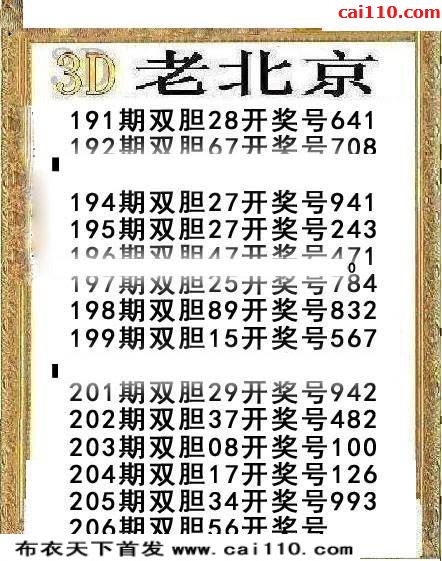 cai110.com
3D 老北京
191期双胆28开奖号641
192期双胆67开奖号708
194期双胆27开奖号941
195期双胆27开奖号243
196期双胆47开奖号471
0
197期双胆25开奖号784
198期双胆89开奖号832
199期双胆15开奖号567
201期双胆29开奖号942
202期双胆37开奖号482
203期双胆08开奖号100
204期双胆17开奖号126
205期双胆34开奖号993
206期双胆56开奖号
布衣天下首发 www.cai110.com